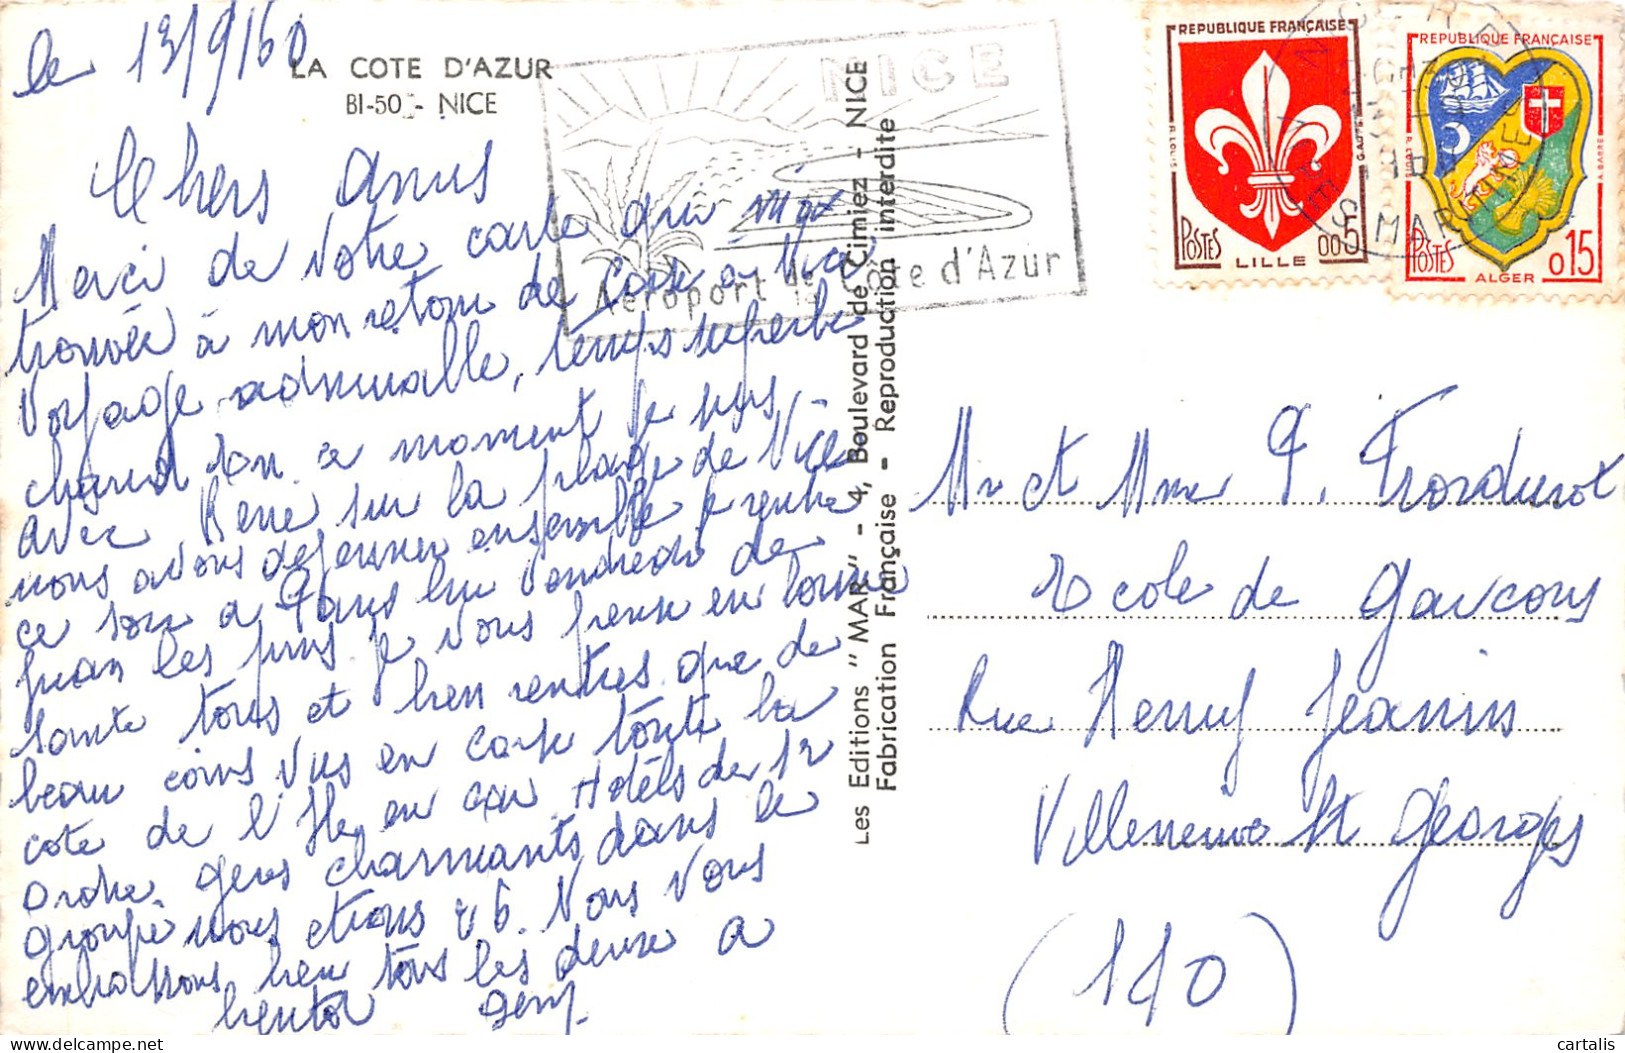 le 13/9/60
LA COTE D'AZUR
BI-50 - NICE
Chers Amis
Merci de votre carte qui m'ox
trouvée à mon retour de Corse à Nice
Voyage admirable, temps superbe
chaud en ce moment je suis
avec René sur la plage de Nice
nous avons déjeuner ensemble je rentre
ce soir à Paris lui vendredi de
Juan les pins je vous pense en bonne
santé tous et bien rentrés que de
beau coins vus en Corse toute la
cote de l'Ile en car Hotels de 1r
Ordre gens charmants dans le
groupe nous étions 26. Nous vous
embrassons bien tous les deux a
bientot
NICE
Aéroport de la Côte d'Azur
Les Editions "MAR" - 4, Boulevard de Cimiez - NICE
Fabrication Française - Reproduction interdite
REPUBLIQUE FRANÇAISE
POSTES
LILLE
0,05
REPUBLIQUE FRANÇAISE
POSTES
ALGER
0,15
Mr et Mme P.
Ecole de Garcons
Rue Henry Jeannin
Villeneuve St Georges
(S & O)
cartalis